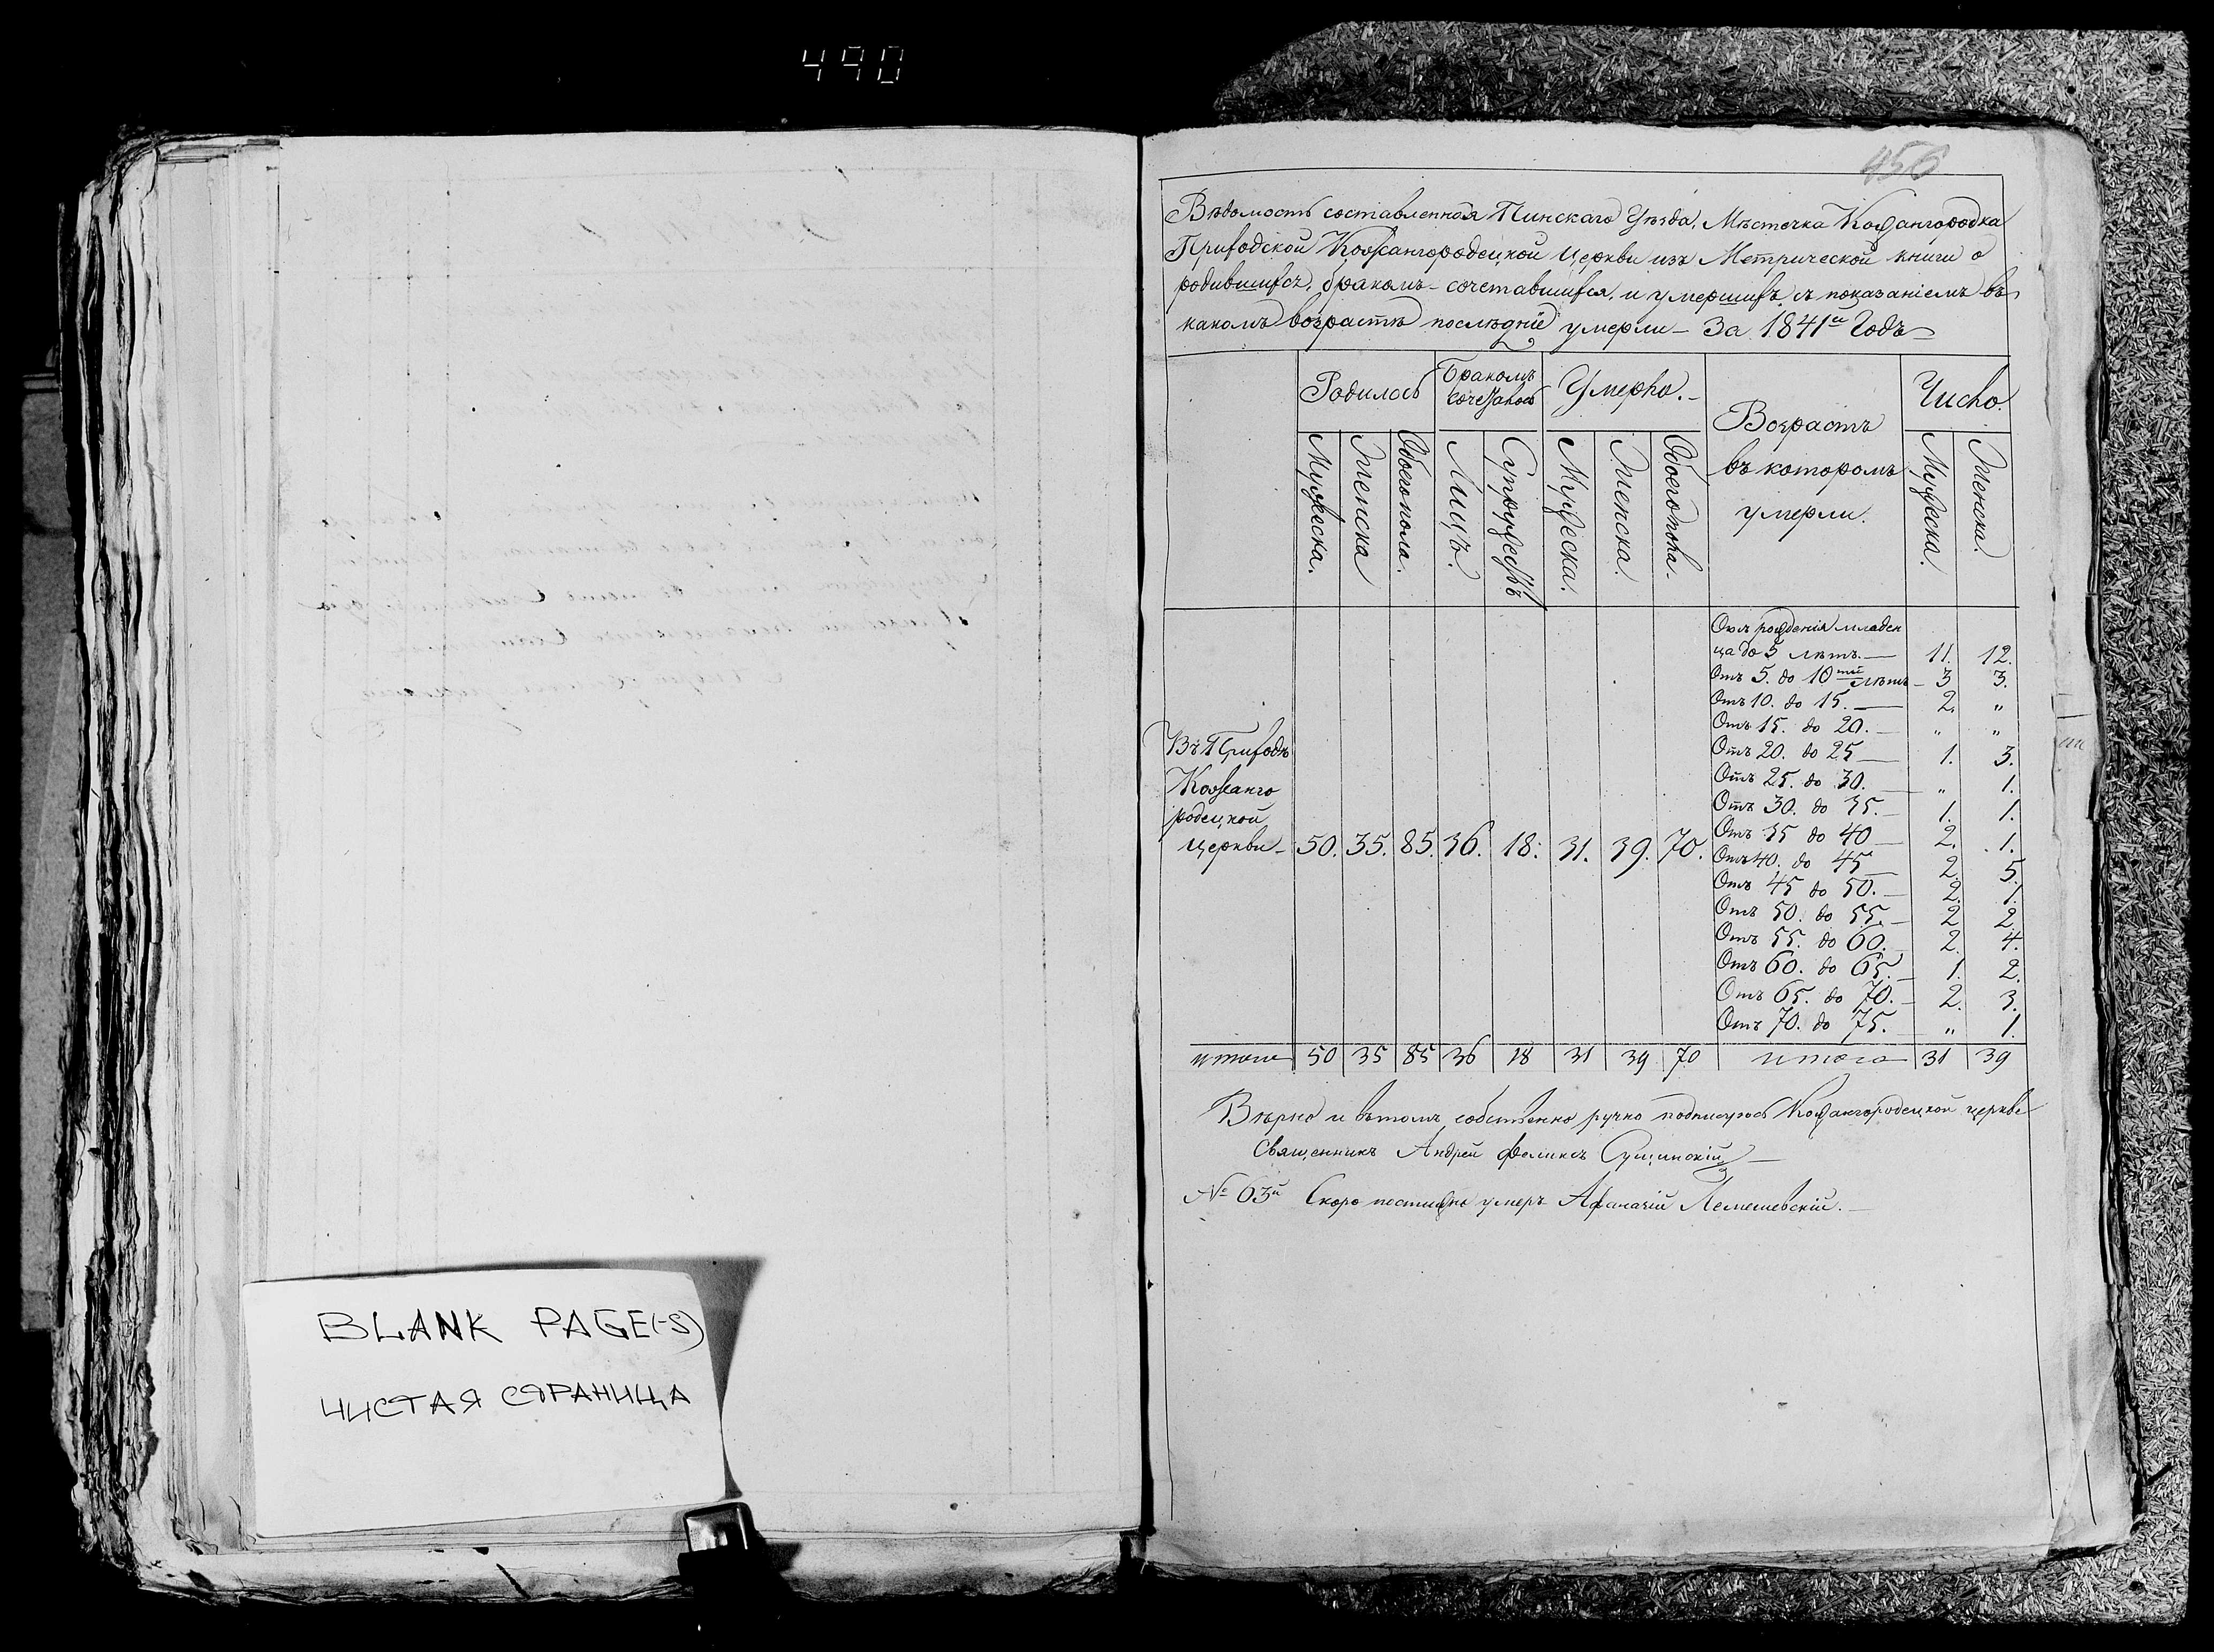 490
BLANK PAGE(-S)
ЧИСТАЯ СТРАНИЦА
456
Вѣдомость составленная Пинскаго Уѣзда, Мѣстечка Кожангородка
Приходской Кожангородецкой Церкви изъ Метрической книги о
родившихся, бракомъ-сочетавшихся, и умершихъ съ показаніемъ въ
какомъ возрастѣ послѣдніе умерли – За 1841й Годъ
Родилось Бракомъ Умерло. Возрастъ Число.
сочеталось
въ которомъ
умерли.
Мужеска. Женска Обоегопола. Лицъ. Супружествъ Мужеска. Женска. Обоегопола. Мужеска. Женска.
Отъ рожденія младен
ца до 5 лѣтъ. — 11. 12.
Отъ 5. до 10ти лѣтъ – 3 3.
Отъ 10. до 15. — 2. "
Отъ 15. до 20. – " "
Въ Приходѣ Отъ 20. до 25 — 1. 3.
Кожанго Отъ 25. до 30. – " 1.
родецкой Отъ 30. до 35. – 1. 1.
Отъ 35 до 40 – 2. 1.
церкви – 50. 35. 85. 36. 18. 31. 39. 70. Отъ 40. до 45 – 2. 5.
Отъ 45 до 50. – 2. 1.
Отъ 50. до 55. – 2 2.
Отъ 55. до 60. – 2. 4.
Отъ 60. до 65. – 1. 2.
Отъ 65. до 70. – 2. 3.
Отъ 70. до 75. – " 1.
итого 50 35 85 36 18 31 39 70 итого 31 39
Вѣрно и вътомъ собственно ручно подписуюсь Кожангородецкой церкви
Священникъ Андрей Феликсъ Сущинскій —
№ 63й Скоро постижно умеръ Афанасій Лемешевскій. —